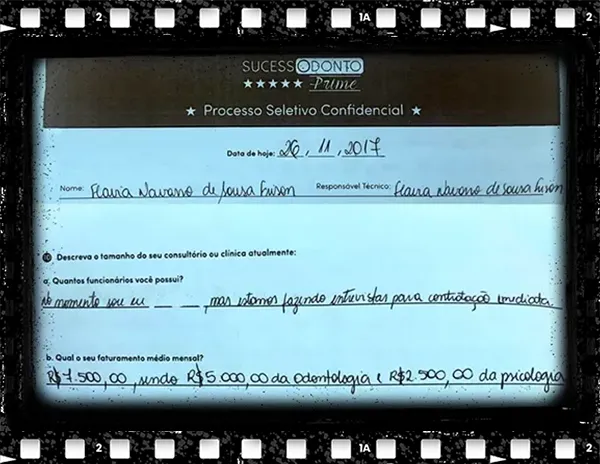 2 1A 2
SUCESSODONTO
Prime
Processo Seletivo Confidencial
Data de hoje: 26, 11, 2017
Nome: Flavia Navarro de Sousa Frison Responsável Técnico: Flavia Navarro de Sousa Frison
10 Descreva o tamanho do seu consultório ou clínica atualmente:
a. Quantos funcionários você possui?
No momento sou eu __ __, mas estamos fazendo entrevistas para contratação imediata.
b. Qual o seu faturamento médio mensal?
R$ 7.500,00, sendo R$5.000,00 da odontologia e R$2.500,00 da psicologia
2 1A 2